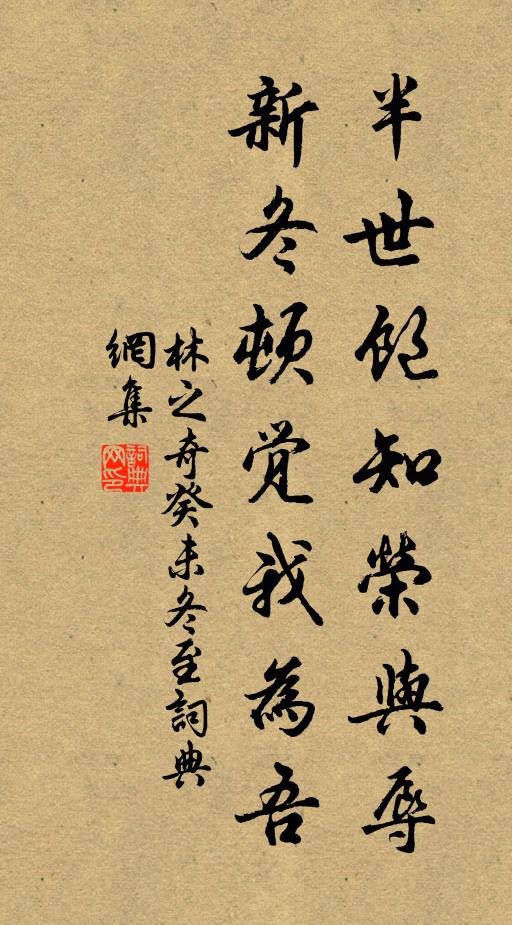 半世飽知榮與辱
新冬頓覺我為吾
林之奇癸未冬至詞典
網集
詞典
网印